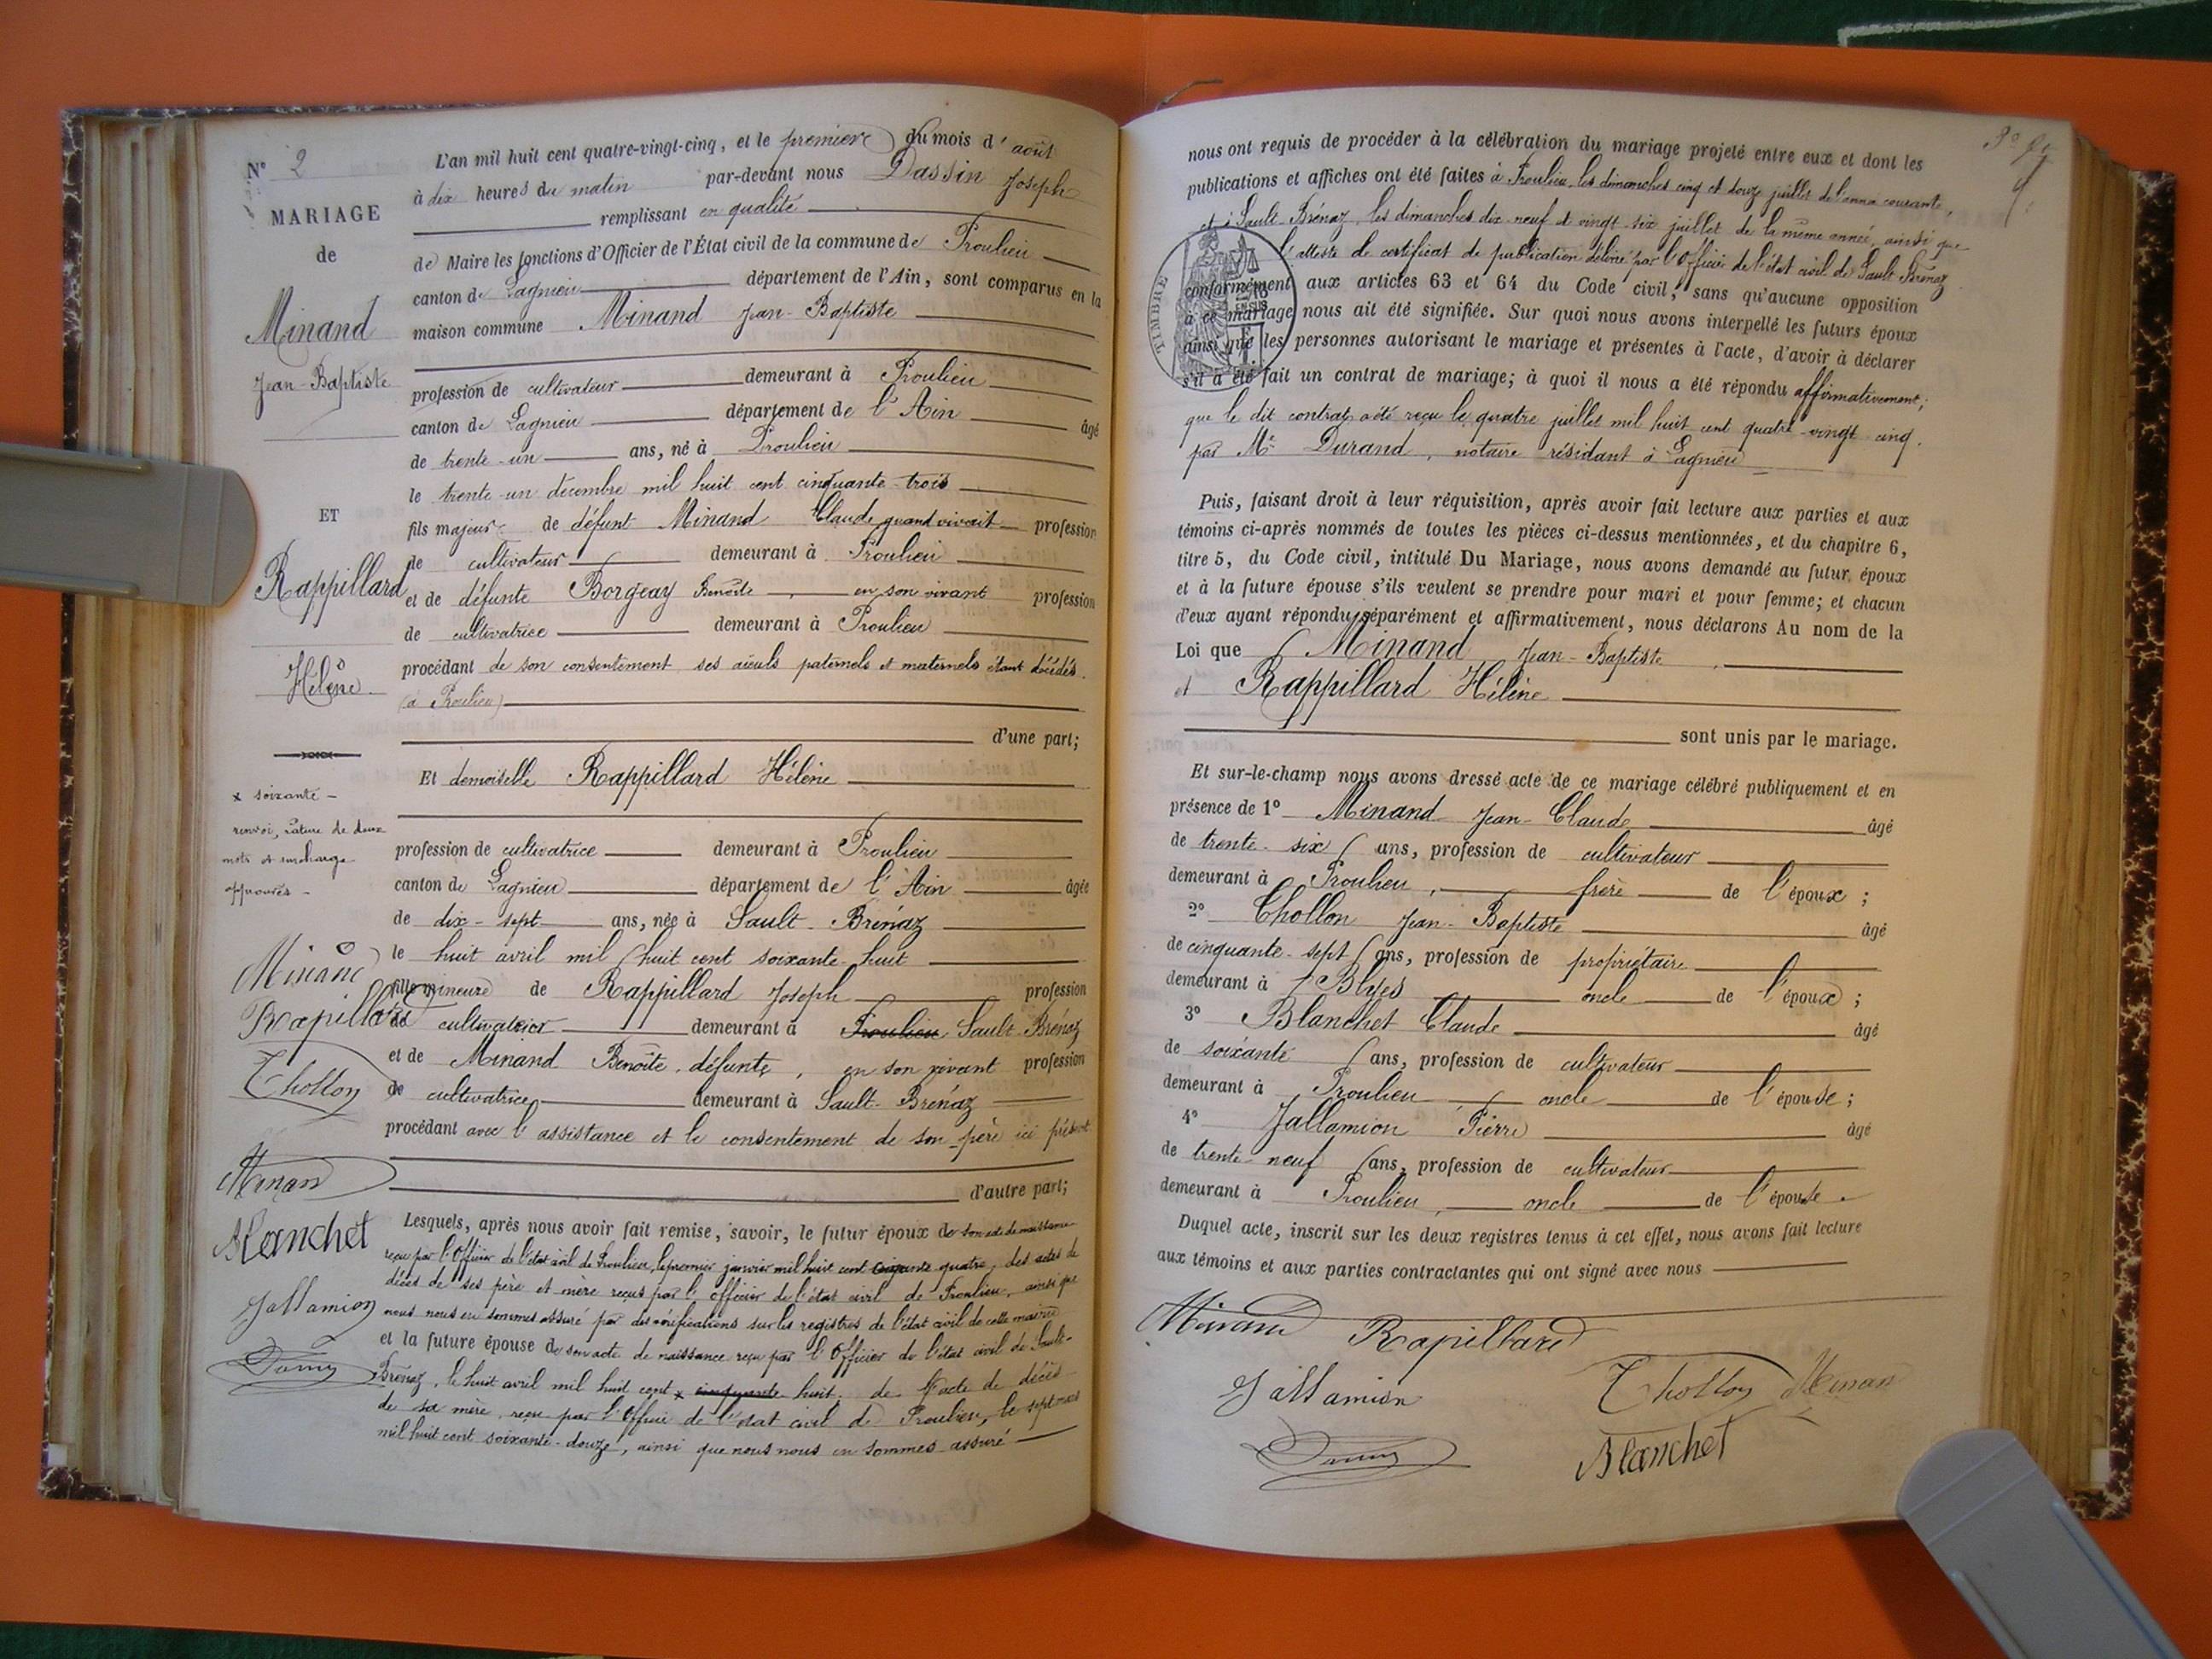 N° 2
MARIAGE
de
Minand
Jean-Baptiste
ET
Rappillard
Hélène
x soixante -
renvoi, rature de deux
mots et surcharge
approuvés -
Minand
Rapillard
Chollon
Minan
Blanchet
Jallamion
L'an mil huit cent quatre-vingt-cinq, et le premier du mois d'août
à dix heures du matin par-devant nous Dassin Joseph
remplissant en qualité
de Maire les fonctions d'Officier de l'État civil de la commune de Proulieu
canton de Lagnieu département de l'Ain, sont comparus en la
maison commune Minand Jean-Baptiste
profession de cultivateur demeurant à Proulieu
canton de Lagnieu département de l'Ain âgé
de trente-un ans, né à Proulieu
le trente-un décembre mil huit cent cinquante-trois
fils majeur de défunt Minand Claude, quand vivait profession
de cultivateur demeurant à Proulieu
et de défunte Borgeay Benoîte, en son vivant profession
de cultivatrice demeurant à Proulieu
procédant de son consentement ses aïeuls paternels et maternels étant décédés
(à Proulieu)
d'une part;
Et demoiselle Rappillard Hélène
profession de cultivatrice demeurant à Proulieu
canton de Lagnieu département de l'Ain âgée
de dix-sept ans, née à Sault-Brénaz
le huit avril mil huit cent soixante-huit
fille mineure de Rappillard Joseph profession
de cultivateur demeurant à Proulieu Sault-Brénaz
et de Minand Benoîte, défunte, en son vivant profession
de cultivatrice demeurant à Sault-Brénaz
procédant avec l'assistance et le consentement de son père ici présent
d'autre part;
Lesquels, après nous avoir fait remise, savoir, le futur époux de son acte de naissance
reçu par l'Officier de l'état civil de Proulieu, le premier janvier mil huit cent cinquante quatre, des actes de
décès de ses père et mère reçus par l'officier de l'état civil de Proulieu, ainsi que
nous nous en sommes assuré par des vérifications sur les registres de l'état civil de cette mairie
et la future épouse de son acte de naissance reçu par l'Officier de l'état civil de Sault-
Brénaz, le huit avril mil huit cent x cinquante huit, de l'acte de décès
de sa mère, reçu par l'Officier de l'état civil de Proulieu, le sept mars
mil huit cent soixante-douze, ainsi que nous nous en sommes assuré
nous ont requis de procéder à la célébration du mariage projeté entre eux et dont les
publications et affiches ont été faites à Proulieu les dimanches cinq et douze juillet de l'année courante,
et à Sault-Brénaz les dimanches dix-neuf et vingt-six juillet de la même année, ainsi que
l'atteste le certificat de publication délivré par l'Officier de l'état civil de Sault-Brénaz
TIMBRE
conformément aux articles 63 et 64 du Code civil, sans qu'aucune opposition
à ce mariage nous ait été signifiée. Sur quoi nous avons interpellé les futurs époux
ainsi que les personnes autorisant le mariage et présentes à l'acte, d'avoir à déclarer
s'il a été fait un contrat de mariage; à quoi il nous a été répondu affirmativement;
que le dit contrat a été reçu le quatre juillet mil huit cent quatre-vingt cinq.
par Me Durand, notaire résidant à Lagnieu
Puis, faisant droit à leur réquisition, après avoir fait lecture aux parties et aux
témoins ci-après nommés de toutes les pièces ci-dessus mentionnées, et du chapitre 6,
titre 5, du Code civil, intitulé Du Mariage, nous avons demandé au futur époux
et à la future épouse s'ils veulent se prendre pour mari et pour femme; et chacun
d'eux ayant répondu séparément et affirmativement, nous déclarons Au nom de la
Loi que Minand Jean-Baptiste
et Rappillard Hélène
sont unis par le mariage.
Et sur-le-champ nous avons dressé acte de ce mariage célébré publiquement et en
présence de 1° Minand Jean-Claude âgé
de trente-six ans, profession de cultivateur
demeurant à Proulieu, frère de l'époux;
2° Chollon Jean-Baptiste âgé
de cinquante-sept ans, profession de propriétaire
demeurant à Blyes oncle de l'époux;
3° Blanchet Claude âgé
de soixante ans, profession de cultivateur
demeurant à Proulieu oncle de l'épouse;
4° Jallamion Pierre âgé
de trente-neuf ans, profession de cultivateur
demeurant à Proulieu, oncle de l'épouse.
Duquel acte, inscrit sur les deux registres tenus à cet effet, nous avons fait lecture
aux témoins et aux parties contractantes qui ont signé avec nous
Minand Rapillard
Jallamion Chollon Minan
Blanchet